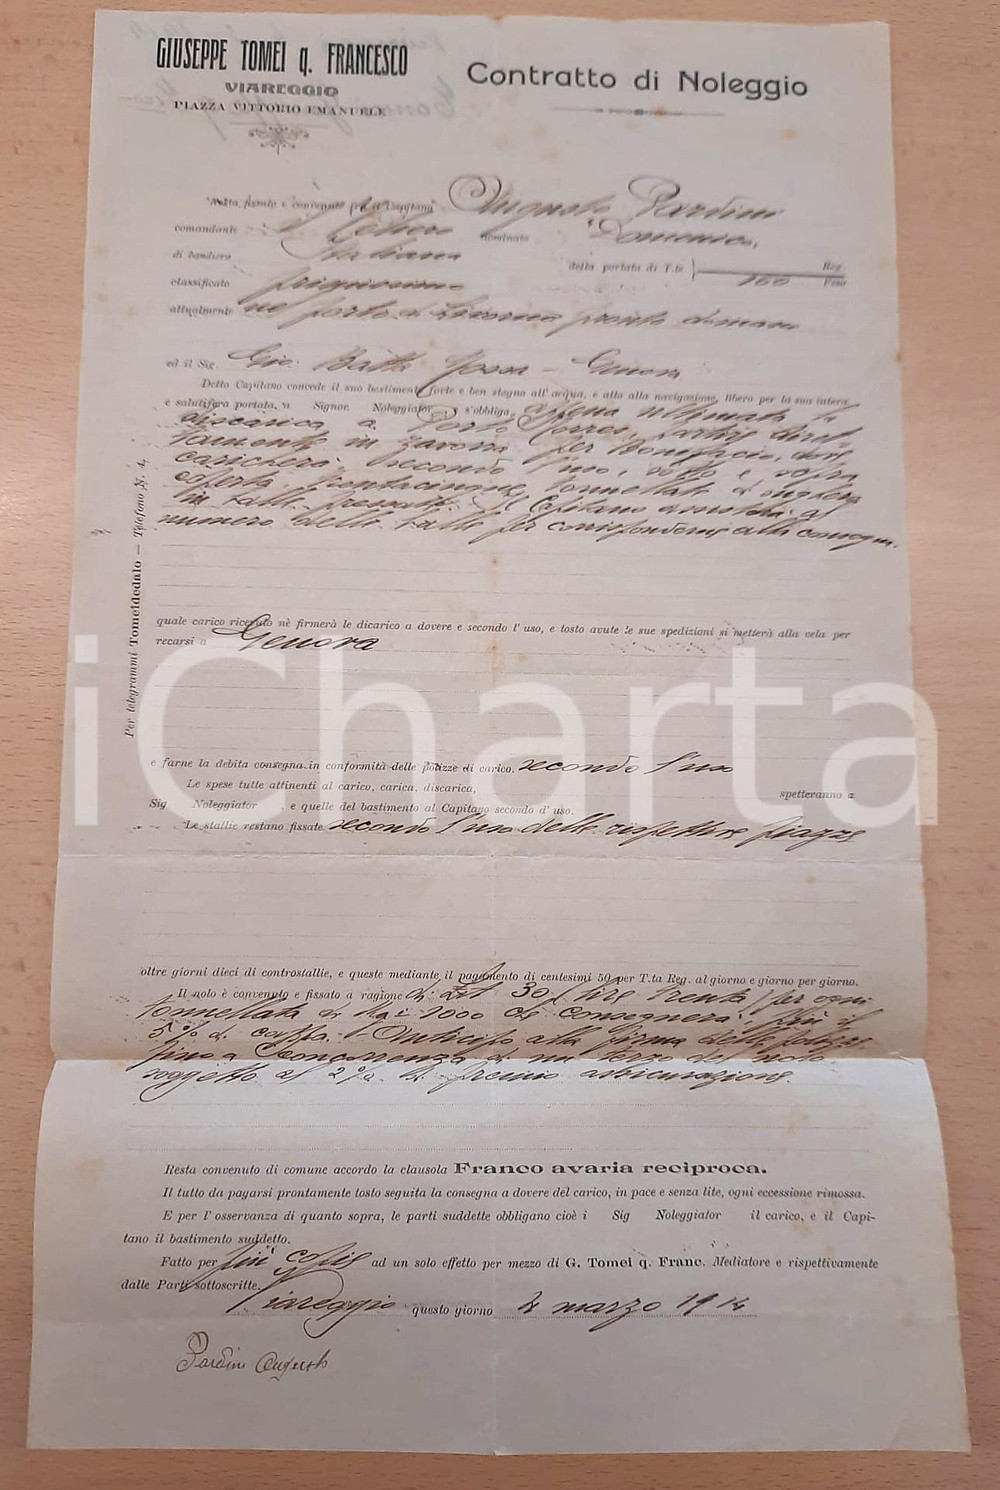 GIUSEPPE TOMEI q. FRANCESCO
VIAREGGIO
PIAZZA VITTORIO EMANUELE
Contratto di Noleggio
Resta fissato e convenuto fra il Capitano Augusto Pardini
comandante il nominato "Domenico,
di bandiera Italiana della portata di T.te Reg.
160 Peso
classificato
attualmente nel porto di Livorno pronto domani
ed il Sig. Gio. Batta - Genova
Detto Capitano concede il suo bastimento forte e ben stagno all'acqua, e atto alla navigazione, libero per la sua intera
e salutifera portata, a Signor Noleggiator s'obbliga appena ultimata la
discarica a Porto Torres, partire diret-
tamente in zavorra per Bonifacio, dove
caricherà secondo l'uso, sotto e sopra
coperta, trentacinque tonnellate di sughero
in balle pressate. Il Capitano al
numero delle balle per corrisponderne alla consegna.
quale carico ricevuto nè firmerà le dicarico a dovere e secondo l'uso, e tosto avute le sue spedizioni si metterà alla vela per
recarsi a Genova
Per telegrammi Tomeidedalo — Telefono N. 4,
iCharta
e farne la debita consegna in conformità delle polizze di carico. secondo l'uso
Le spese tutte attinenti al carico, carica, discarica, spetteranno a
Sig Noleggiator , e quelle del bastimento al Capitano secondo d'uso.
Le stallie restano fissate secondo l'uso delle rispettive piazze
oltre giorni dieci di controstallie, e queste mediante il pagamento di centesimi 50 per T.ta Reg. al giorno e giorno per giorno.
Il nolo è convenuto e fissato a ragione di Lit 30 (lire trenta) per ogni
tonnellata di 1000 che consegnerà. Più il
5% di cappa. Anticipo alla firma delle polizze
fino a concorrenza di un terzo del nolo
soggetto al 2% di premio assicurazione.
Resta convenuto di comune accordo la clausola Franco avaria reciproca.
Il tutto da pagarsi prontamente tosto seguita la consegna a dovere del carico, in pace e senza lite, ogni eccessione rimossa.
E per l'osservanza di quanto sopra, le parti suddette obbligano cioè i Sig Noleggiator il carico, e il Capi-
tano il bastimento suddetto.
Fatto per più copie ad un solo effetto per mezzo di G. Tomei q. Franc. Mediatore e rispettivamente
dalle Parti sottoscritte.
Viareggio questo giorno 4 marzo 1914
Pardini Augusto